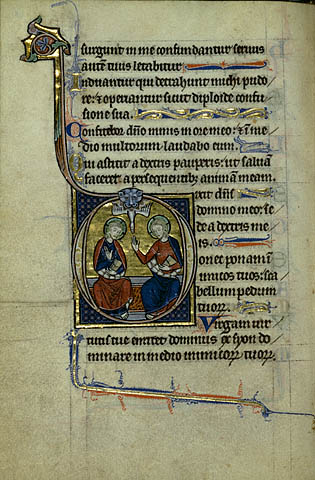 surgunt in me confundantur seruus
autē tuus letabitur
Induantur qui detrahunt michi pudo
re: ⁊ operiantur sicut diploide confu
sione sua.
Confitebor dn̄o nimis in ore meo: ⁊ ī me
dio multorum laudabo eum.
Qui astitit a dextris pauperis: ut saluā
faceret a persequentib; animam meam.
Dixit dn̄s
domino meo: se
de a dextris me
is.
Donec ponam in
imicos tuos: sca
bellum pedum
tuoꝝ.
Virgam uir
tutis tue emittet dominus ex syon do
minare in medio inimicoꝝ tuoꝝ.